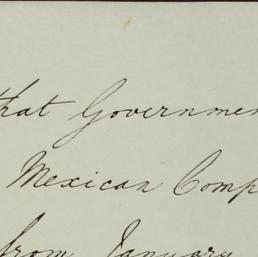 that Governmen
Mexican Comp
from January